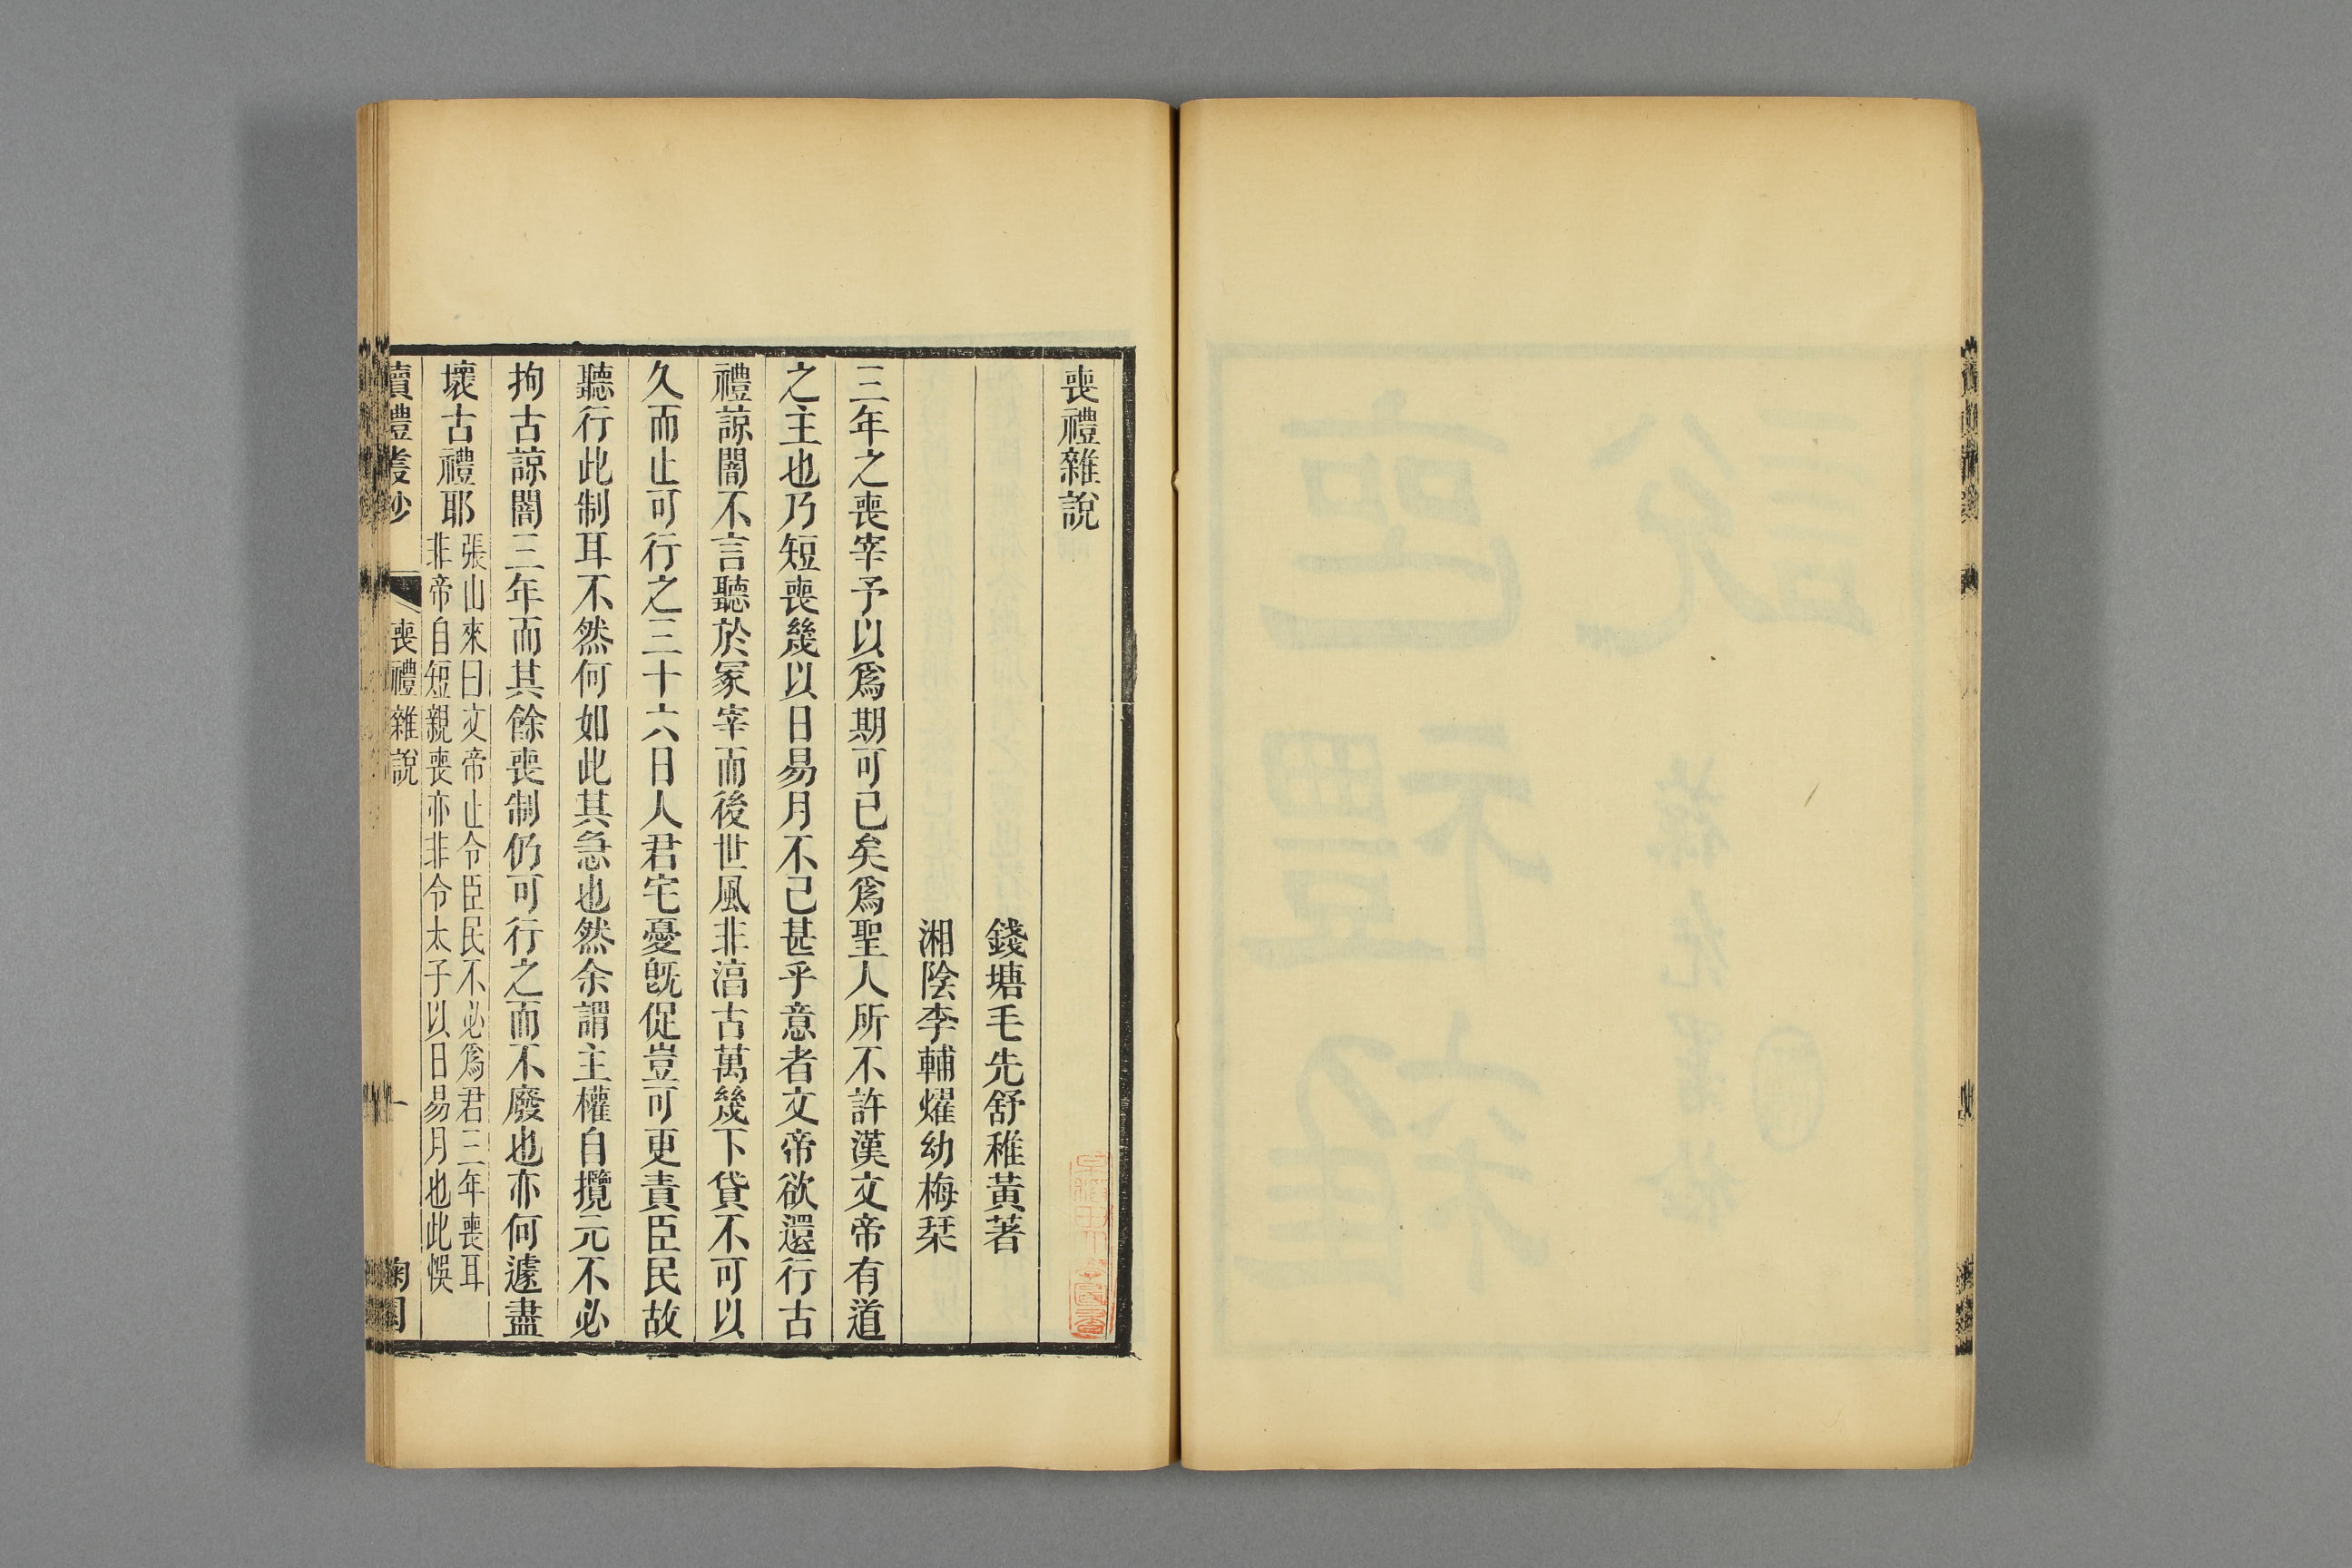 喪禮雜說
錢塘毛先舒稚黃著
湘陰李輔燿幼梅栞
三年之喪宰予以爲期可已矣爲聖人所不許漢文帝有道
之主也乃短喪幾以日易月不已甚乎意者文帝欲還行古
禮諒闇不言聽於冢宰而後世風非湻古萬幾下貸不可以
久而止可行之三十六日人君宅憂旣促豈可更責臣民故
聽行此制耳不然何如此其急也然余謂主權自攬元不必
拘古諒闇三年而其餘喪制仍可行之而不廢也亦何遽盡
壞古禮耶張山來曰文帝止令臣民不必爲君三年喪耳
非帝自短親喪亦非令太子以日易月也此悞
讀禮叢鈔 喪禮雜說 一